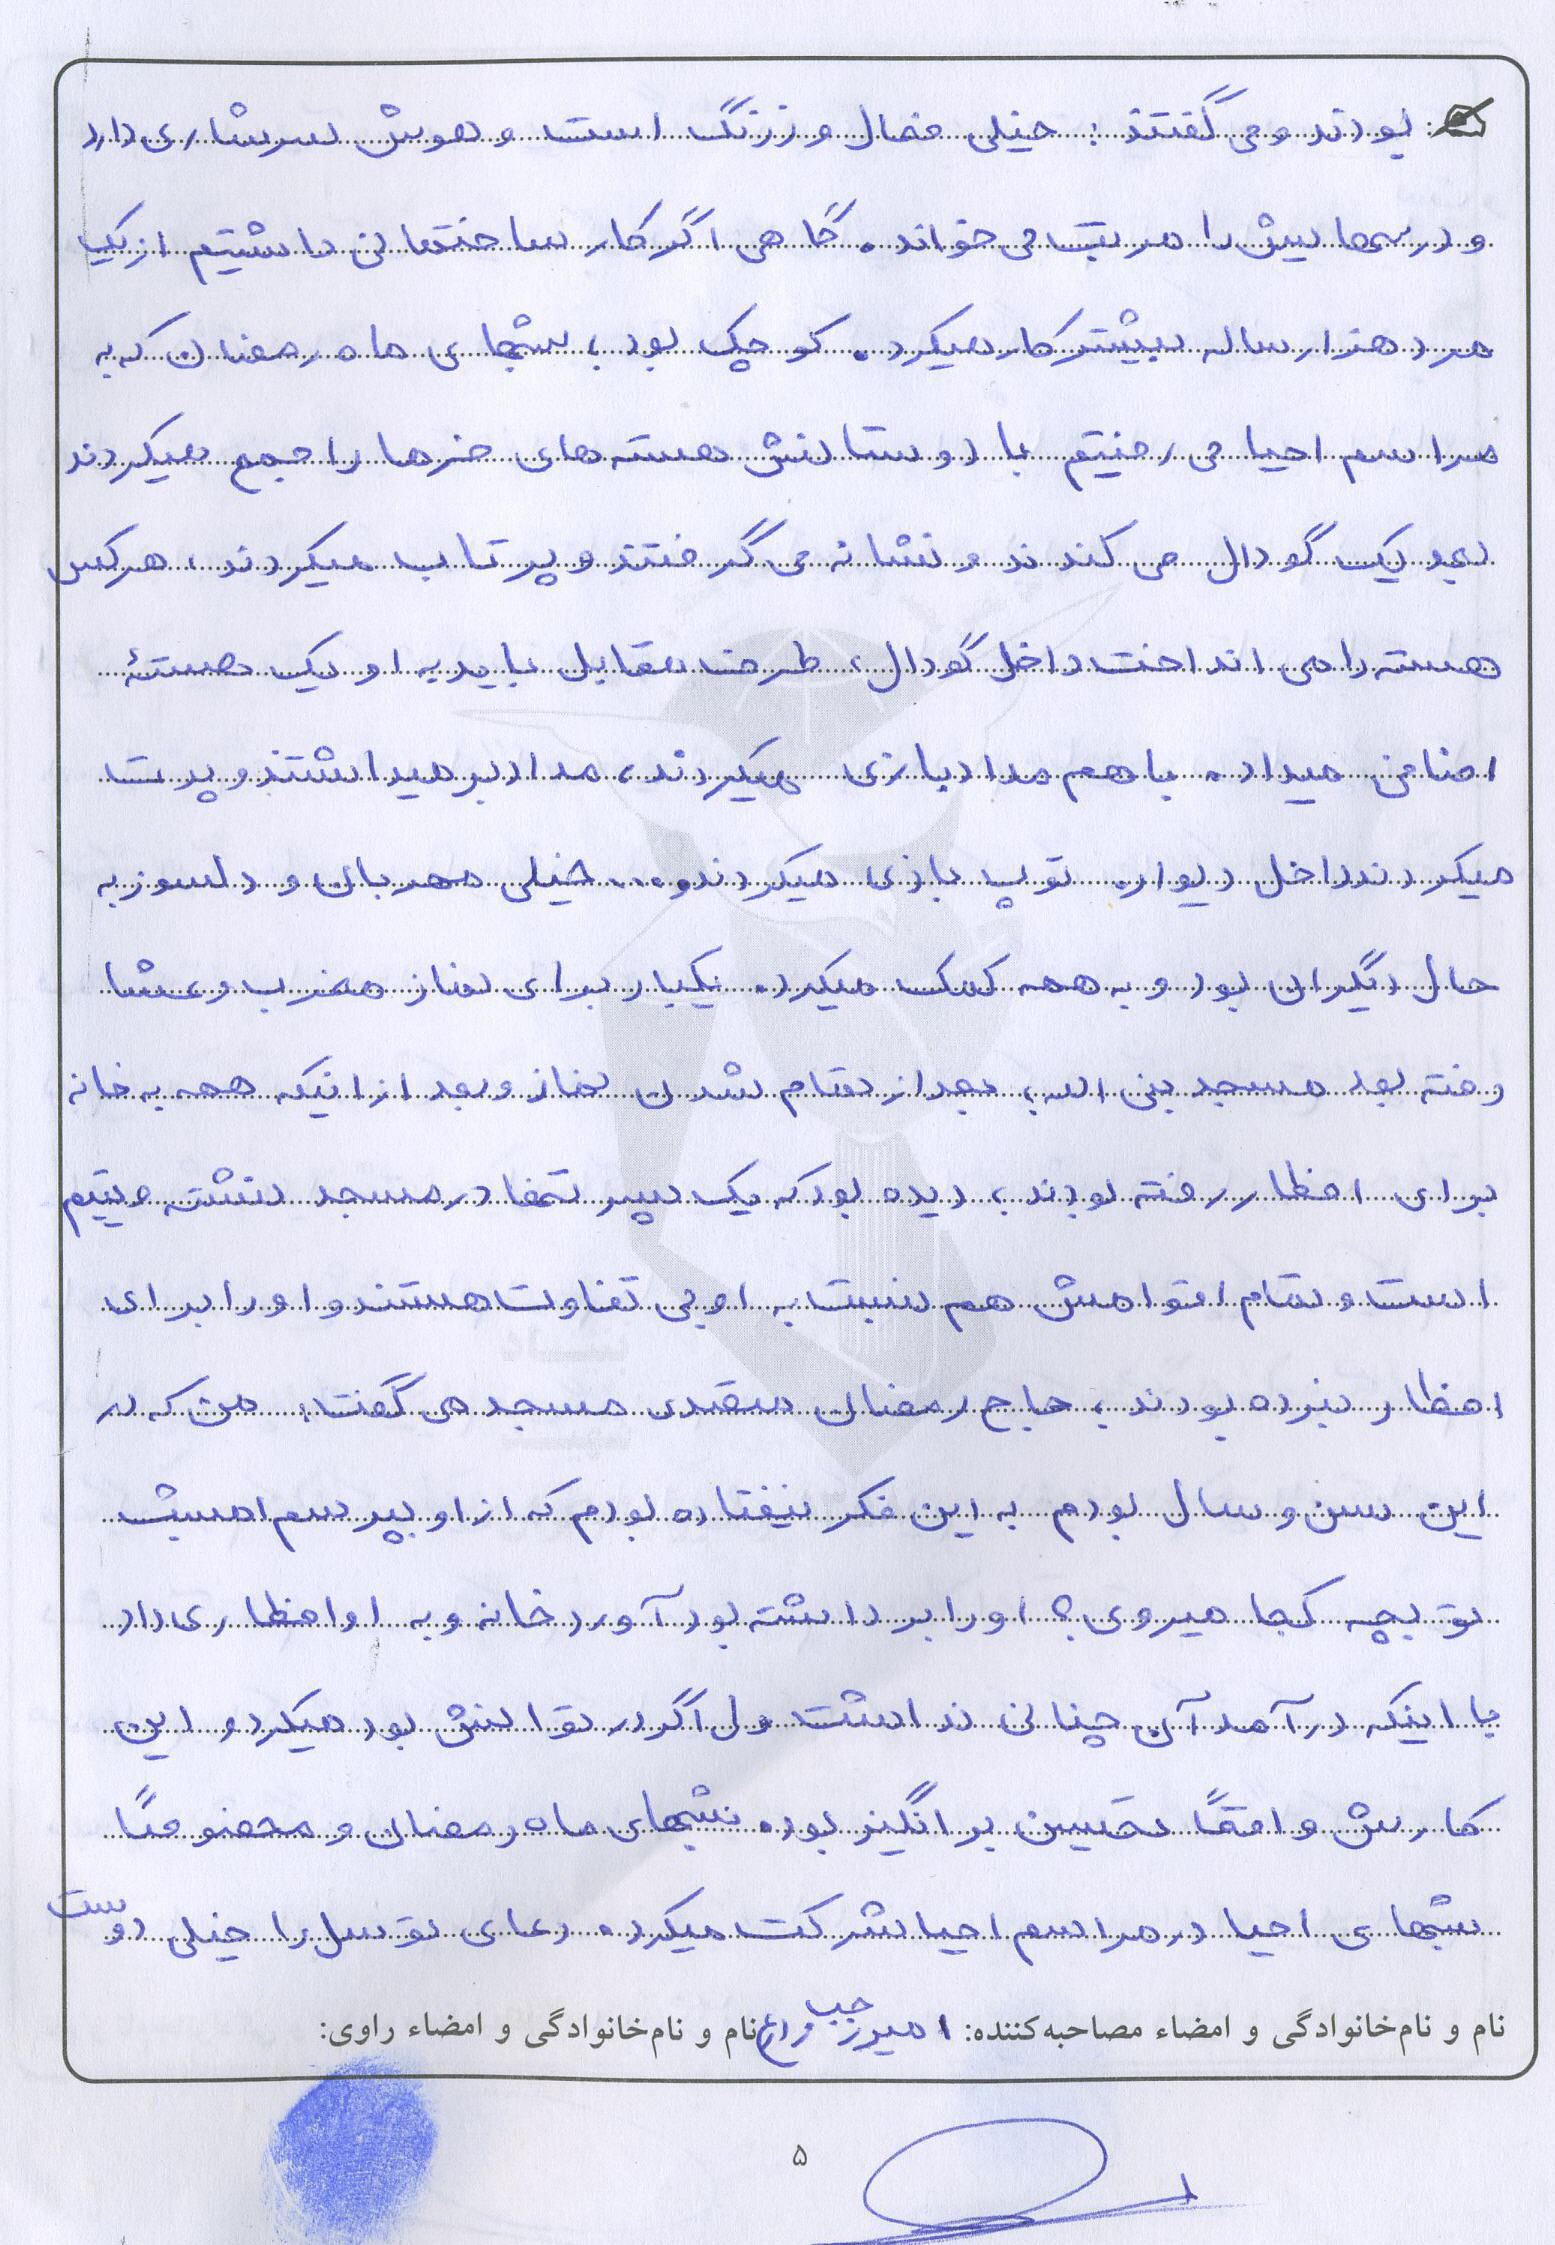 بودند و می گفتند : خیلی فعال و زرنگ است و هوش سرشاری دارد
و درسهایش را مرتب می خواند. گاهی اگر کار ساختمانی داشتیم از یک
مرد هزار ساله بیشتر کار میکرد. کوچک بود، شبهای ماه رمضان که به
مراسم احیا می رفتیم با دوستانش هسته های خرما را جمع میکردند
بعد یک گودال می کندند و نشانه می گرفتند و پرتاب میکردند، هرکس
هسته را می انداخت داخل گودال، طرف مقابل باید به او یک هستهٔ
اضافی میداد. با هم مداد بازی میکردند، مداد بر میداشتند و پرت
میکردند داخل دیوار. توپ بازی میکردند و... خیلی مهربان و دلسوز به
حال دیگران بود و به همه کمک میکرد. یکبار برای نماز مغرب و عشا
رفته بود مسجد بنی اسد، بعد از تمام شدن نماز و بعد از اینکه همه به خانه
برای افطار رفته بودند، دیده بود که یک پسر تنها در مسجد نشسته و یتیم
است و تمام اقوامش هم نسبت به او بی تفاوت هستند و او را برای
افطار نبرده بودند، حاج رمضان متصدی مسجد می گفت: من که در
این سن و سال بودم به این فکر نیفتاده بودم که از او بپرسم امشب
تو بچه کجا میروی؟ او را برداشته بود آورد خانه و به او افطاری داد
با اینکه درآمد آن چنانی نداشت ولی اگر در توانش بود میکرد و این
کارش واقعاً تحسین برانگیز بود. شبهای ماه رمضان و مخصوصاً
شبهای احیا در مراسم احیا شرکت میکرد. دعای توسل را خیلی دوست
نام و نام‌خانوادگی و امضاء مصاحبه‌کننده: امیر رجب نام و نام‌خانوادگی و امضاء راوی:
۵